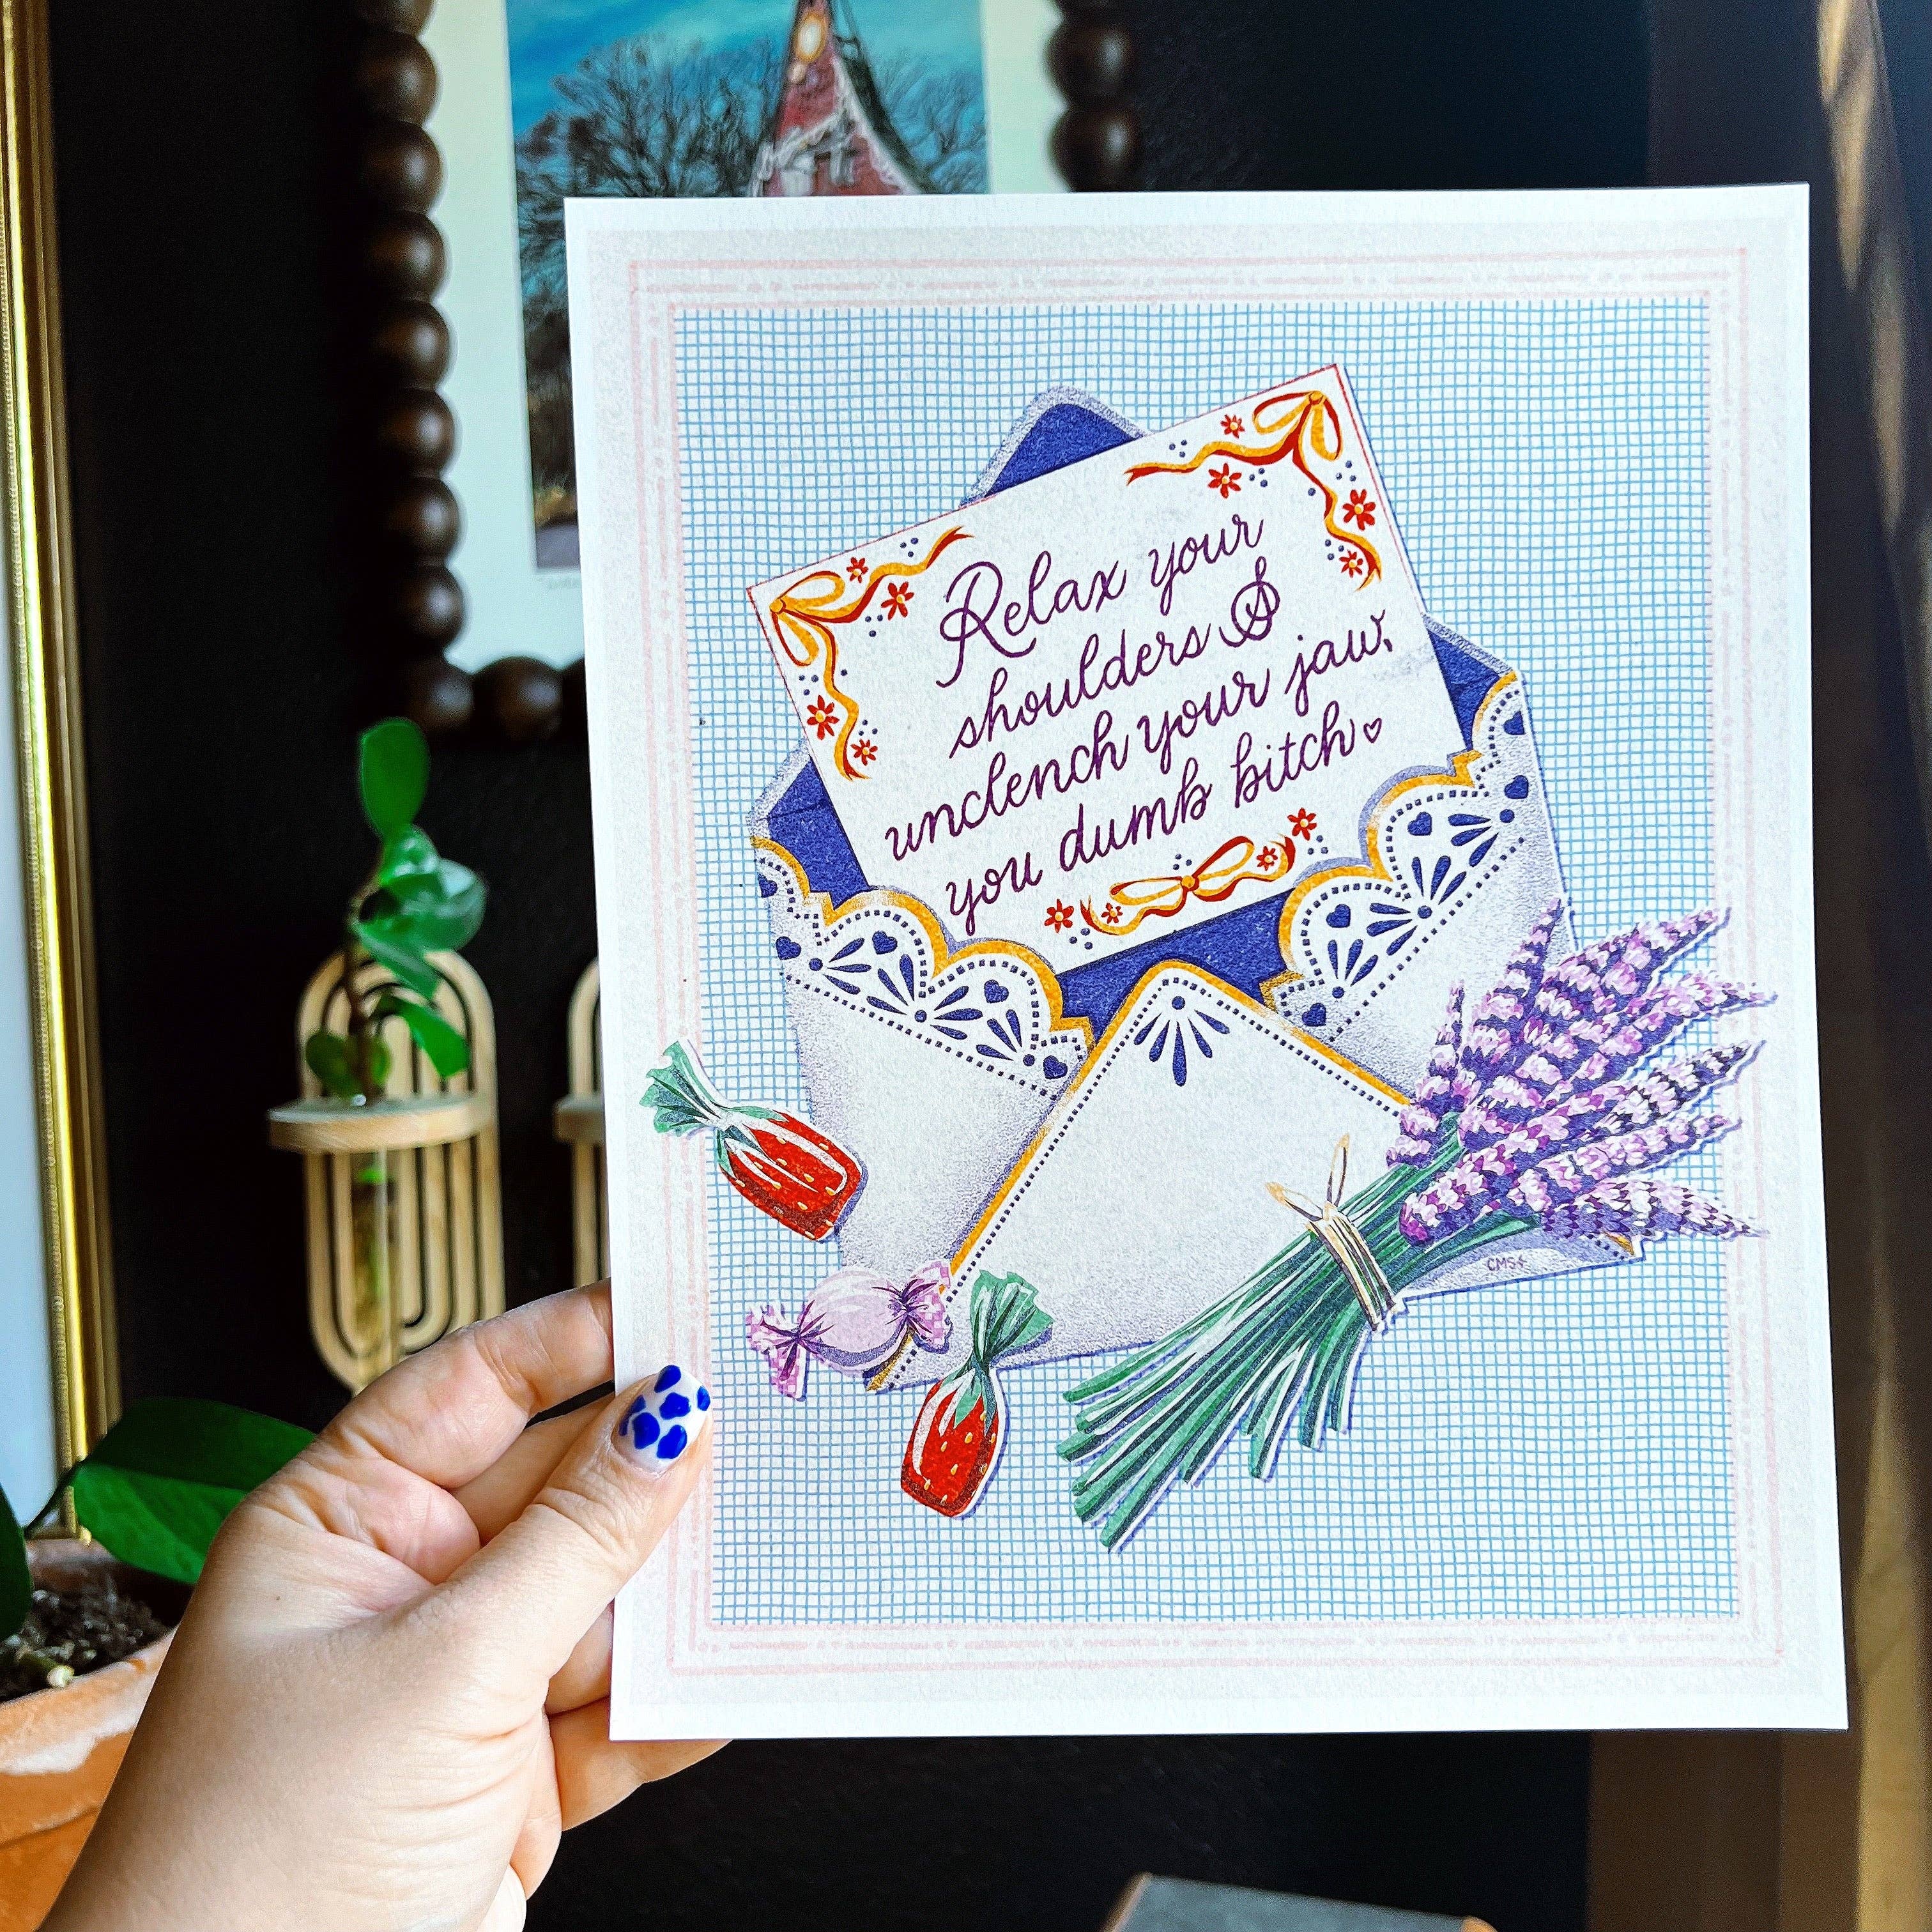 Relax your
shoulders &
unclench your jaw,
you dumb bitch♡